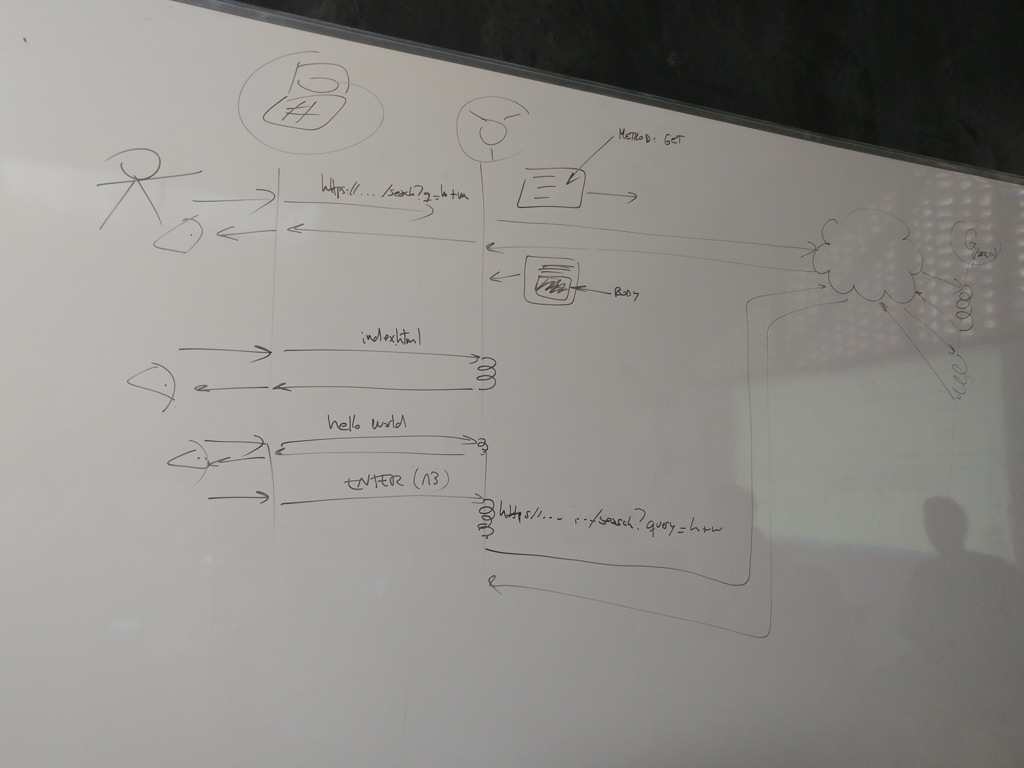 METHOD: GET
https://..../search?q=h+w
BODY
index.html
hello world
ENTER (13)
https://.... .../search?query=h+w